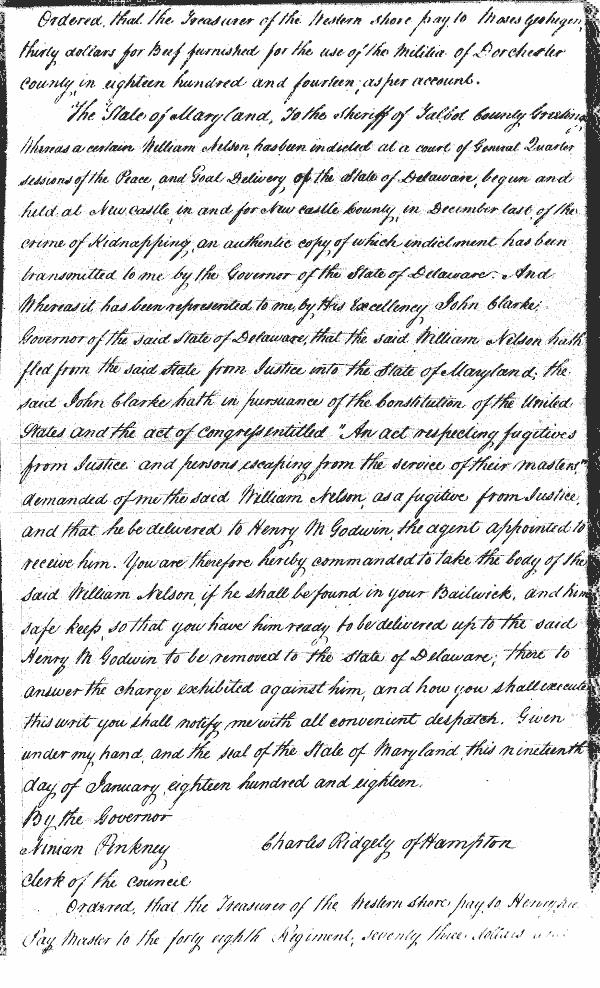 Ordered, that the Treasurer of the Western Shore pay to Moses Geohegen,
thirty dollars for Beef furnished for the use of the Militia of Dorchester
County, in eighteen hundred and fourteen, as per account.
The State of Maryland, To the Sheriff of Talbot County Greeting,
Whereas a certain William Nelson, has been indicted at a court of General Quarter
sessions of the Peace, and Goal Delivery, of the State of Delaware, begun and
held at New Castle, in and for New castle County, in December last of the
crime of Kidnapping, an authentic copy of which indictment has been
transmitted to me by the Governor of the State of Delaware. And
Whereas it has been represented to me, by His Excellency John Clarke,
Governor of the said State of Delaware, that the said William Nelson hath
fled from the said State from Justice into the State of Maryland; the
said John Clarke hath in pursuance of the Constitution of the United
States and the act of Congress entitled "An act respecting fugitives
from Justice and persons escaping from the service of their masters"
demanded of me the said William Nelson, as a fugitive from Justice,
and that he be delivered to Henry M Godwin, the agent appointed to
receive him. You are therefore hereby commanded to take the body of the
said William Nelson, if he shall be found in your Bailwick, and him
safe keep so that you have him ready to be delivered up to the said
Henry M Godwin to be removed to the State of Delaware; there to
answer the charge exhibited against him, and how you shall execute
this writ you shall notify me with all convenient despatch. Given
under my hand, and the seal of the State of Maryland, this nineteenth
day of January, eighteen hundred and eighteen.
By the Governor
Ninian Pinkney Charles Ridgely of Hampton
Clerk of the Council
Ordered, that the Treasurer of the Western Shore pay to Henry
Pay Master to the forty eighth Regiment, seventy three dollars and